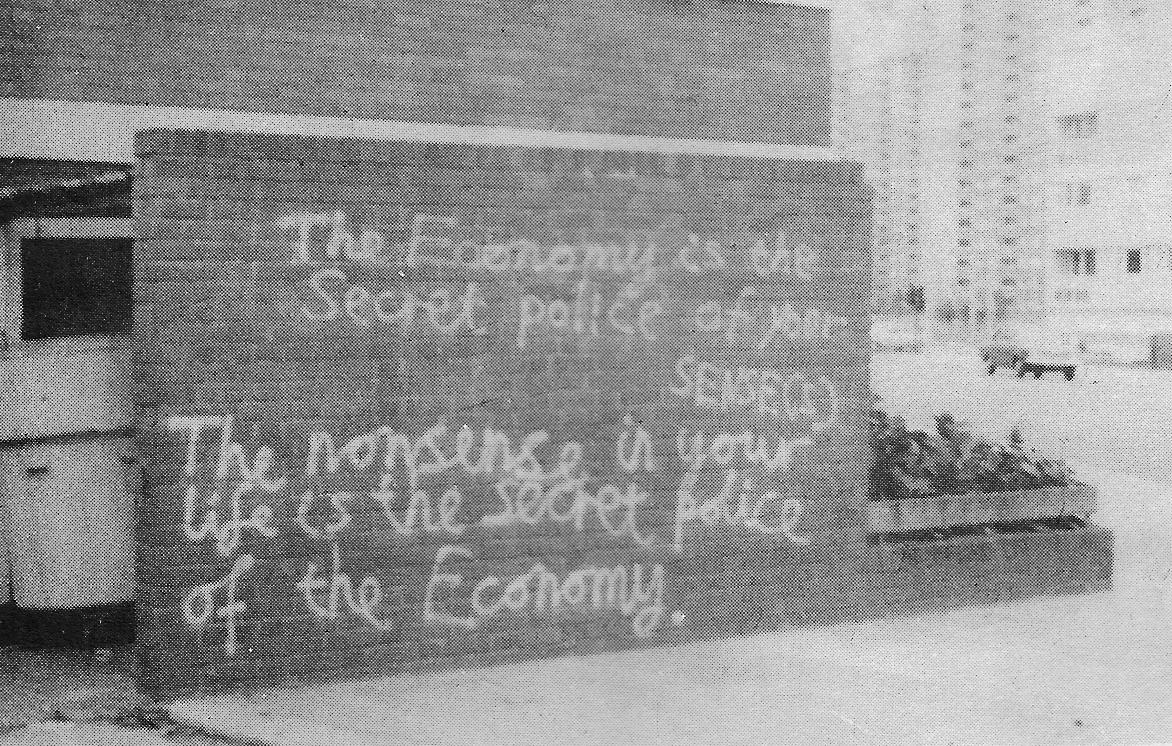 The Economy is the
Secret police of your
SENSE(S)
The nonsense in your
life is the secret police
of the Economy.